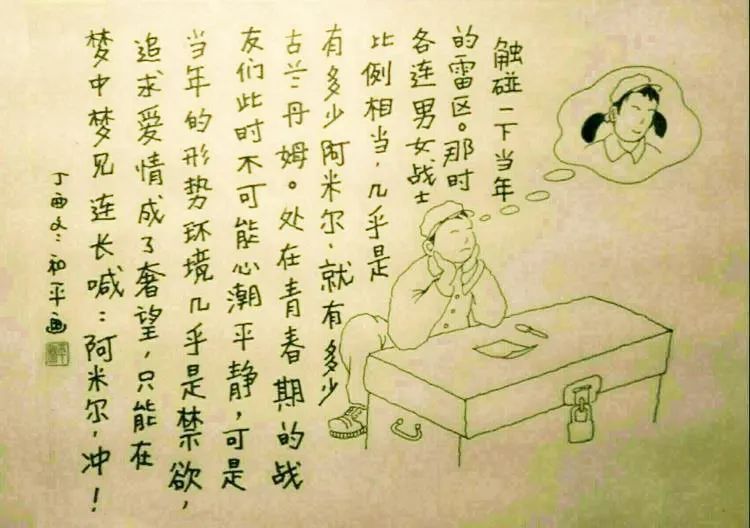 触碰一下当年
的雷区。那时
各连男女战士
比例相当，几乎是
有多少阿米尔，就有多少
古兰丹姆。处在青春期的战
友们此时不可能心潮平静，可是
当年的形势环境几乎是禁欲，
追求爱情成了奢望，只能在
梦中梦见连长喊：阿米尔，冲！
丁酉冬和平画